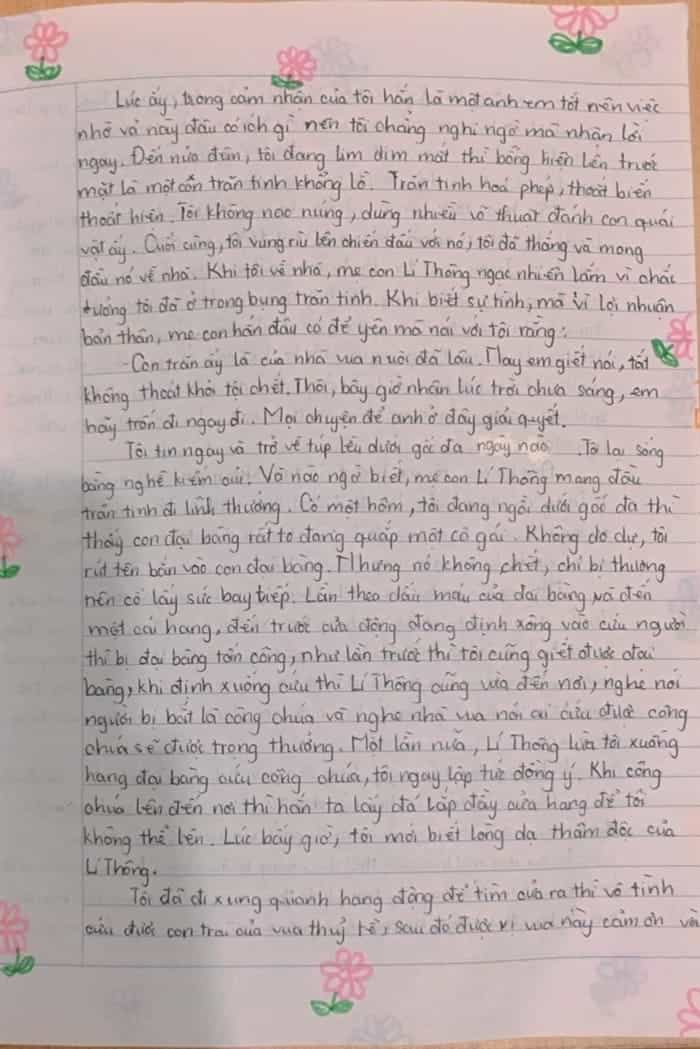 Lúc ấy, trong cảm nhận của tôi hắn là một anh em tốt nên việc
nhờ vả này đâu có ích gì nên tôi chẳng nghi ngờ mà nhận lời
ngay. Đến nửa đêm, tôi đang lim dim mắt thì bỗng hiện lên trước
mặt là một con trăn tinh khổng lồ. Trăn tinh hoá phép, thoắt biến
thoắt hiện. Tôi không nao núng, dùng nhiều võ thuật đánh con quái
vật ấy. Cuối cùng, tôi vung rìu lên chiến đấu với nó, tôi đã thắng và mang
đầu nó về nhà. Khi tôi về nhà, mẹ con Lí Thông ngạc nhiên lắm vì chắc
tưởng tôi đã ở trong bụng trăn tinh. Khi biết sự tình, mà vì lợi nhuận
bản thân, mẹ con hắn đâu có để yên mà nói với tôi rằng:
-Con trăn ấy là của nhà vua nuôi đã lâu. Nay em giết nói, tất
không thoát khỏi tội chết. Thôi, bây giờ nhân lúc trời chưa sáng, em
hãy trốn đi ngay đi. Mọi chuyện để anh ở đây giải quyết.
Tôi tin ngay và trở về túp lều dưới gốc đa ngày nào . Tôi lại sống
bằng nghề kiếm củi. Và nào ngờ biết, mẹ con Lí Thông mang đầu
trăn tinh đi lĩnh thưởng. Có một hôm, tôi đang ngồi dưới gốc đa thì
thấy con đại bàng rất to đang quắp một cô gái. Không do dự, tôi
rút tên bắn vào con đại bàng. Nhưng nó không chết, chỉ bị thương
nên cố lấy sức bay tiếp. Lần theo dấu máu của đại bàng và đến
một cái hang, đến trước cửa động đang định xông vào cứu người
thì bị đại bàng tấn công, như lần trước thì tôi cũng giết được đại
bàng, khi định xuống cứu thì Lí Thông cũng vừa đến nơi, nghe nói
người bị bắt là công chúa và nghe nhà vua nói ai cứu được công
chúa sẽ được trọng thưởng. Một lần nữa, Lí Thông lừa tôi xuống
hang đại bàng cứu công chúa, tôi ngay lập tức đồng ý. Khi công
chúa lên đến nơi thì hắn ta lấy đá lấp đầy cửa hang để tôi
không thể lên. Lúc bấy giờ, tôi mới biết lòng dạ thâm độc của
Lí Thông.
Tôi đã đi xung quanh hang động để tìm cửa ra thì vô tình
cứu được con trai của vua thuỷ tề, sau đó được vị vua này cảm ơn và